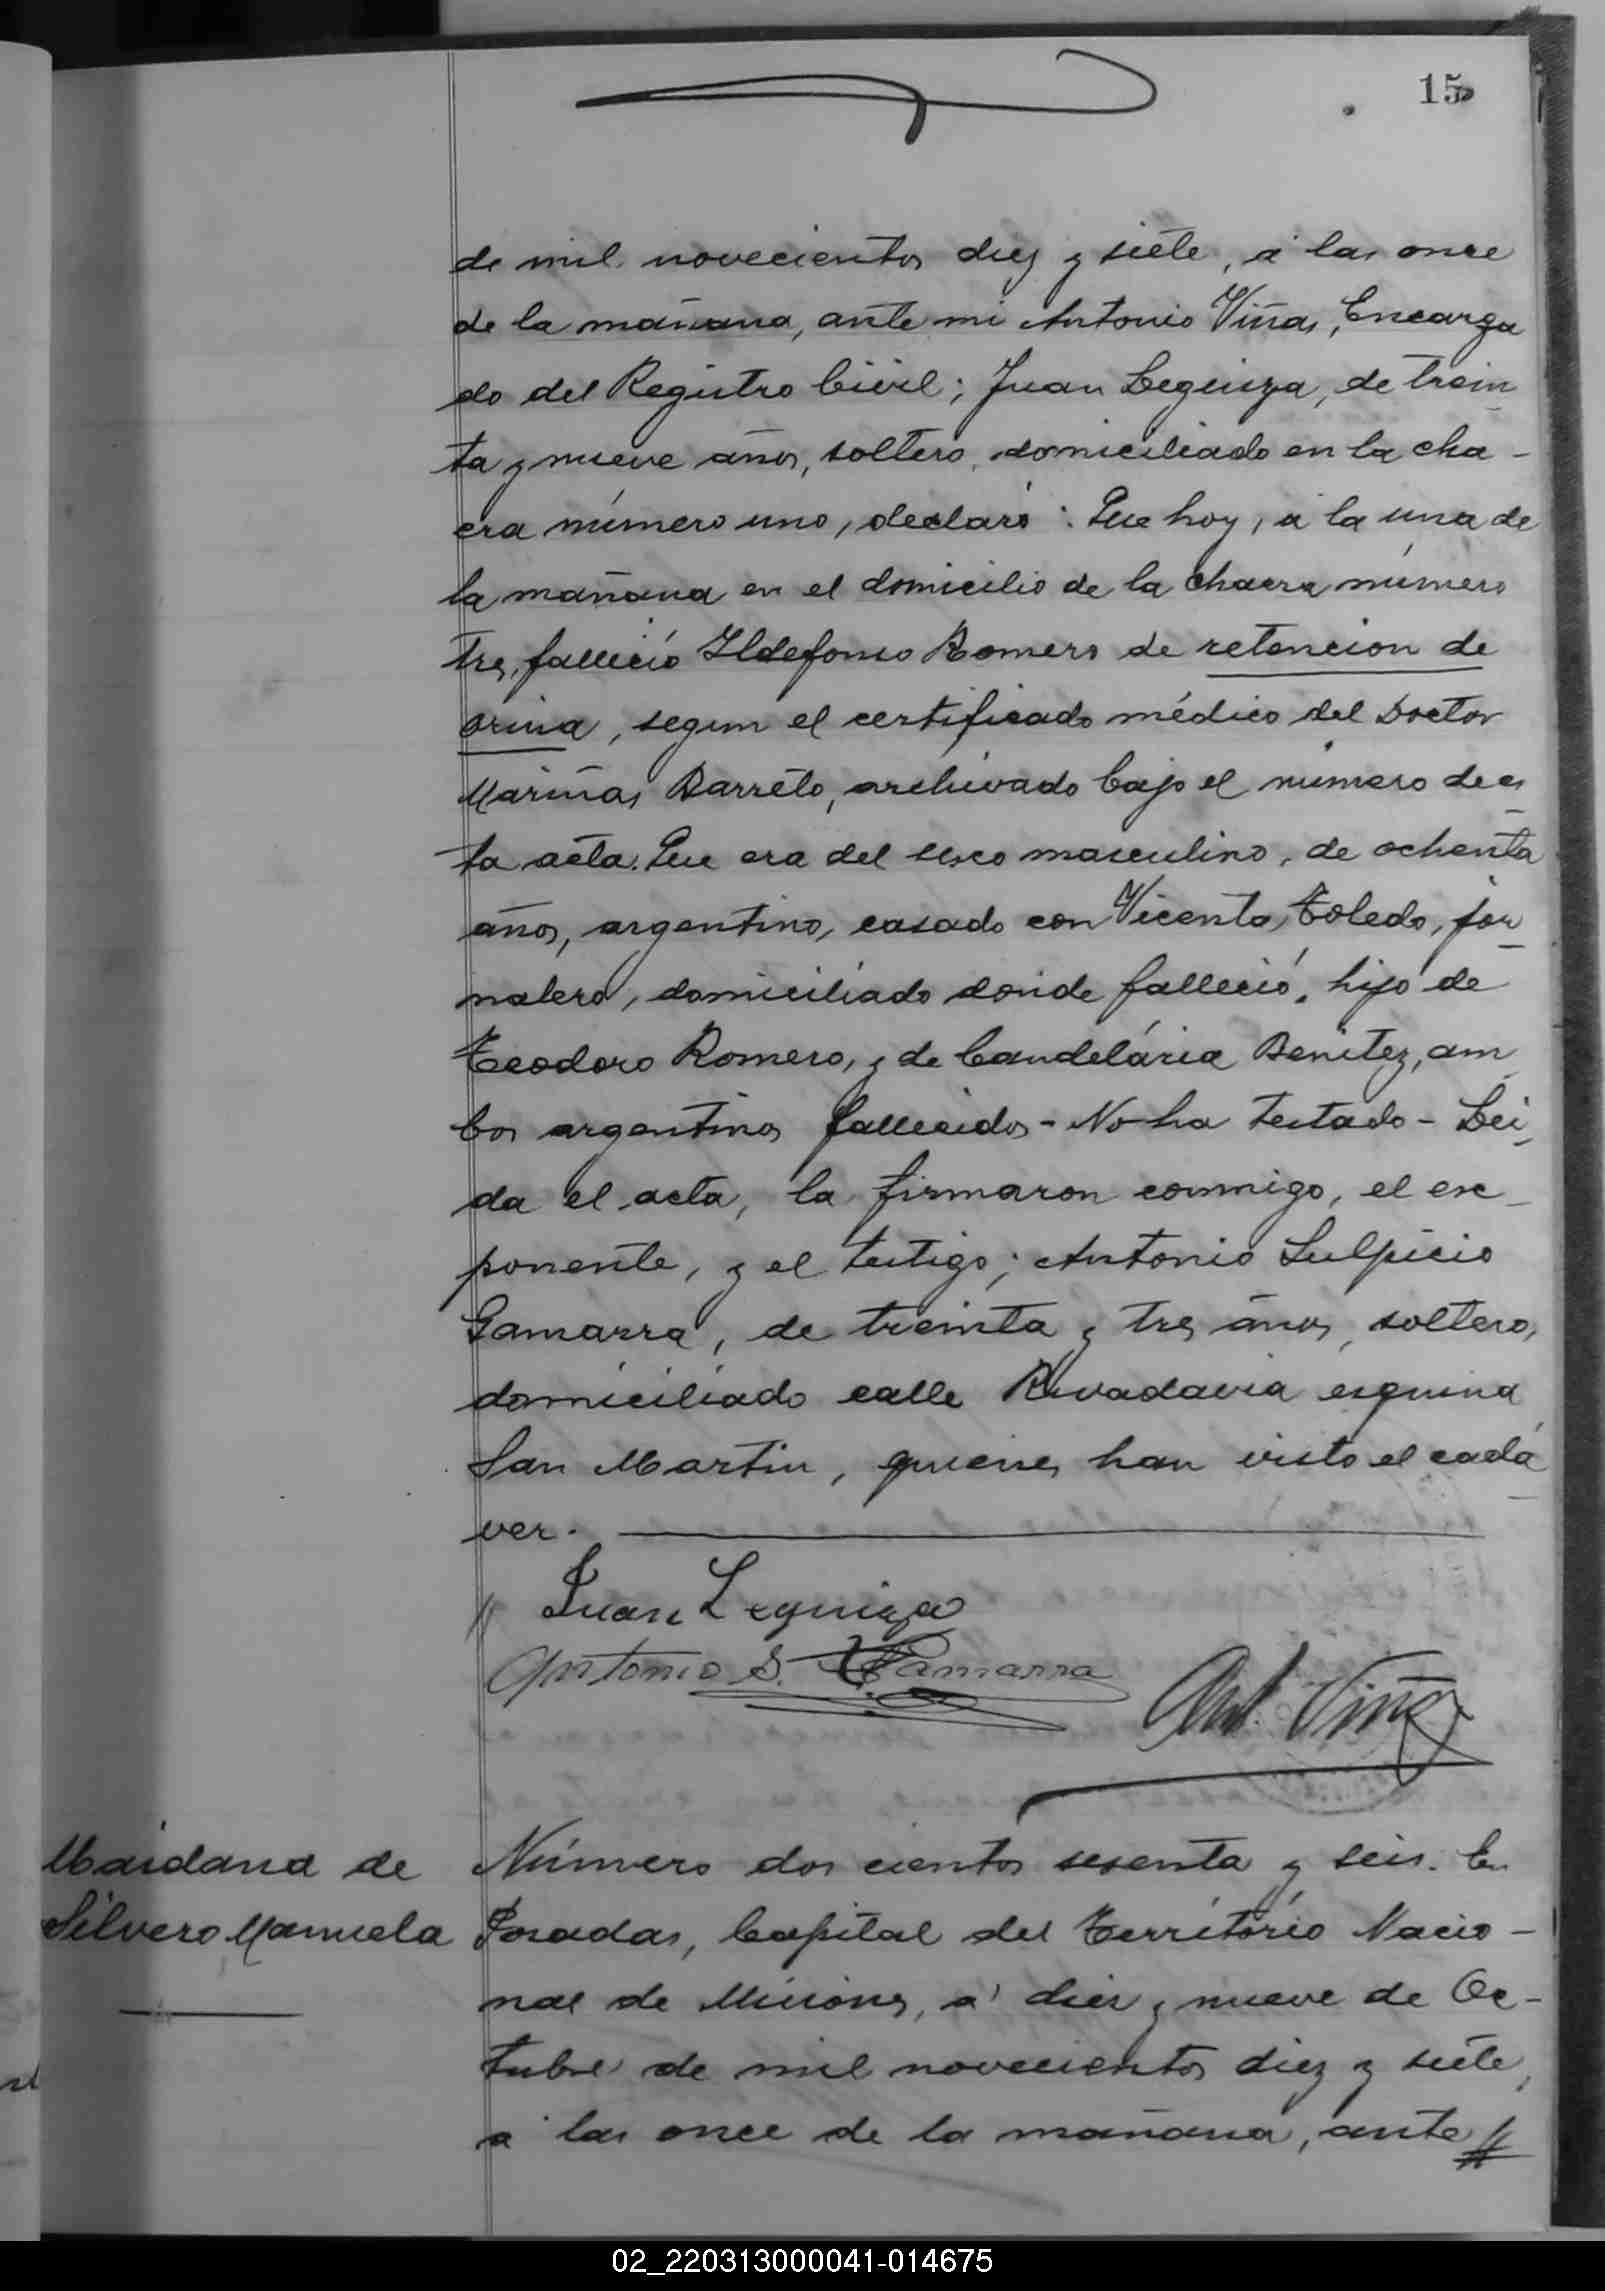 15
de mil novecientos diez y siete, á las once
de la mañana, ante mi Antonio Viñas, Encarga
do del Registro Civil; Juan Leguiza, de trein
ta y nueve años, soltero, domiciliado en la cha-
cra número uno, declaró: Que hoy, á la una de
la mañana en el domicilio de la chacra número
tres, falleció Ildefonso Romero de retencion de
orina, segun el certificado médico del Doctor
Mariñas Barreto, archivado bajo el número de es
ta acta. Que era del sexo masculino, de ochenta
años, argentino, casado con Vicenta Toledo, jor
nalero, domiciliado donde falleció, hijo de
Teodoro Romero, y de Candelária Benitez, am
bos argentinos fallecidos - No ha testado - Lei
da el acta, la firmaron conmigo, el ex-
ponente, y el testigo; Antonio Sulpicio
Gamarra, de treinta y tres años, soltero,
domiciliado calle Rivadavia esquina
San Martin, quienes han visto el cadá
ver.
Juan Leguiza
Antonio S. Gamarra
Ant. Viñas
Maidana de
Silvero Manuela
Número dos cientos sesenta y seis. En
Posadas, Capital del Território Nacio-
nal de Misiones, á diez y nueve de Oc-
tubre de mil novecientos diez y siete,
á las once de la mañana, ante
02_220313000041-014675